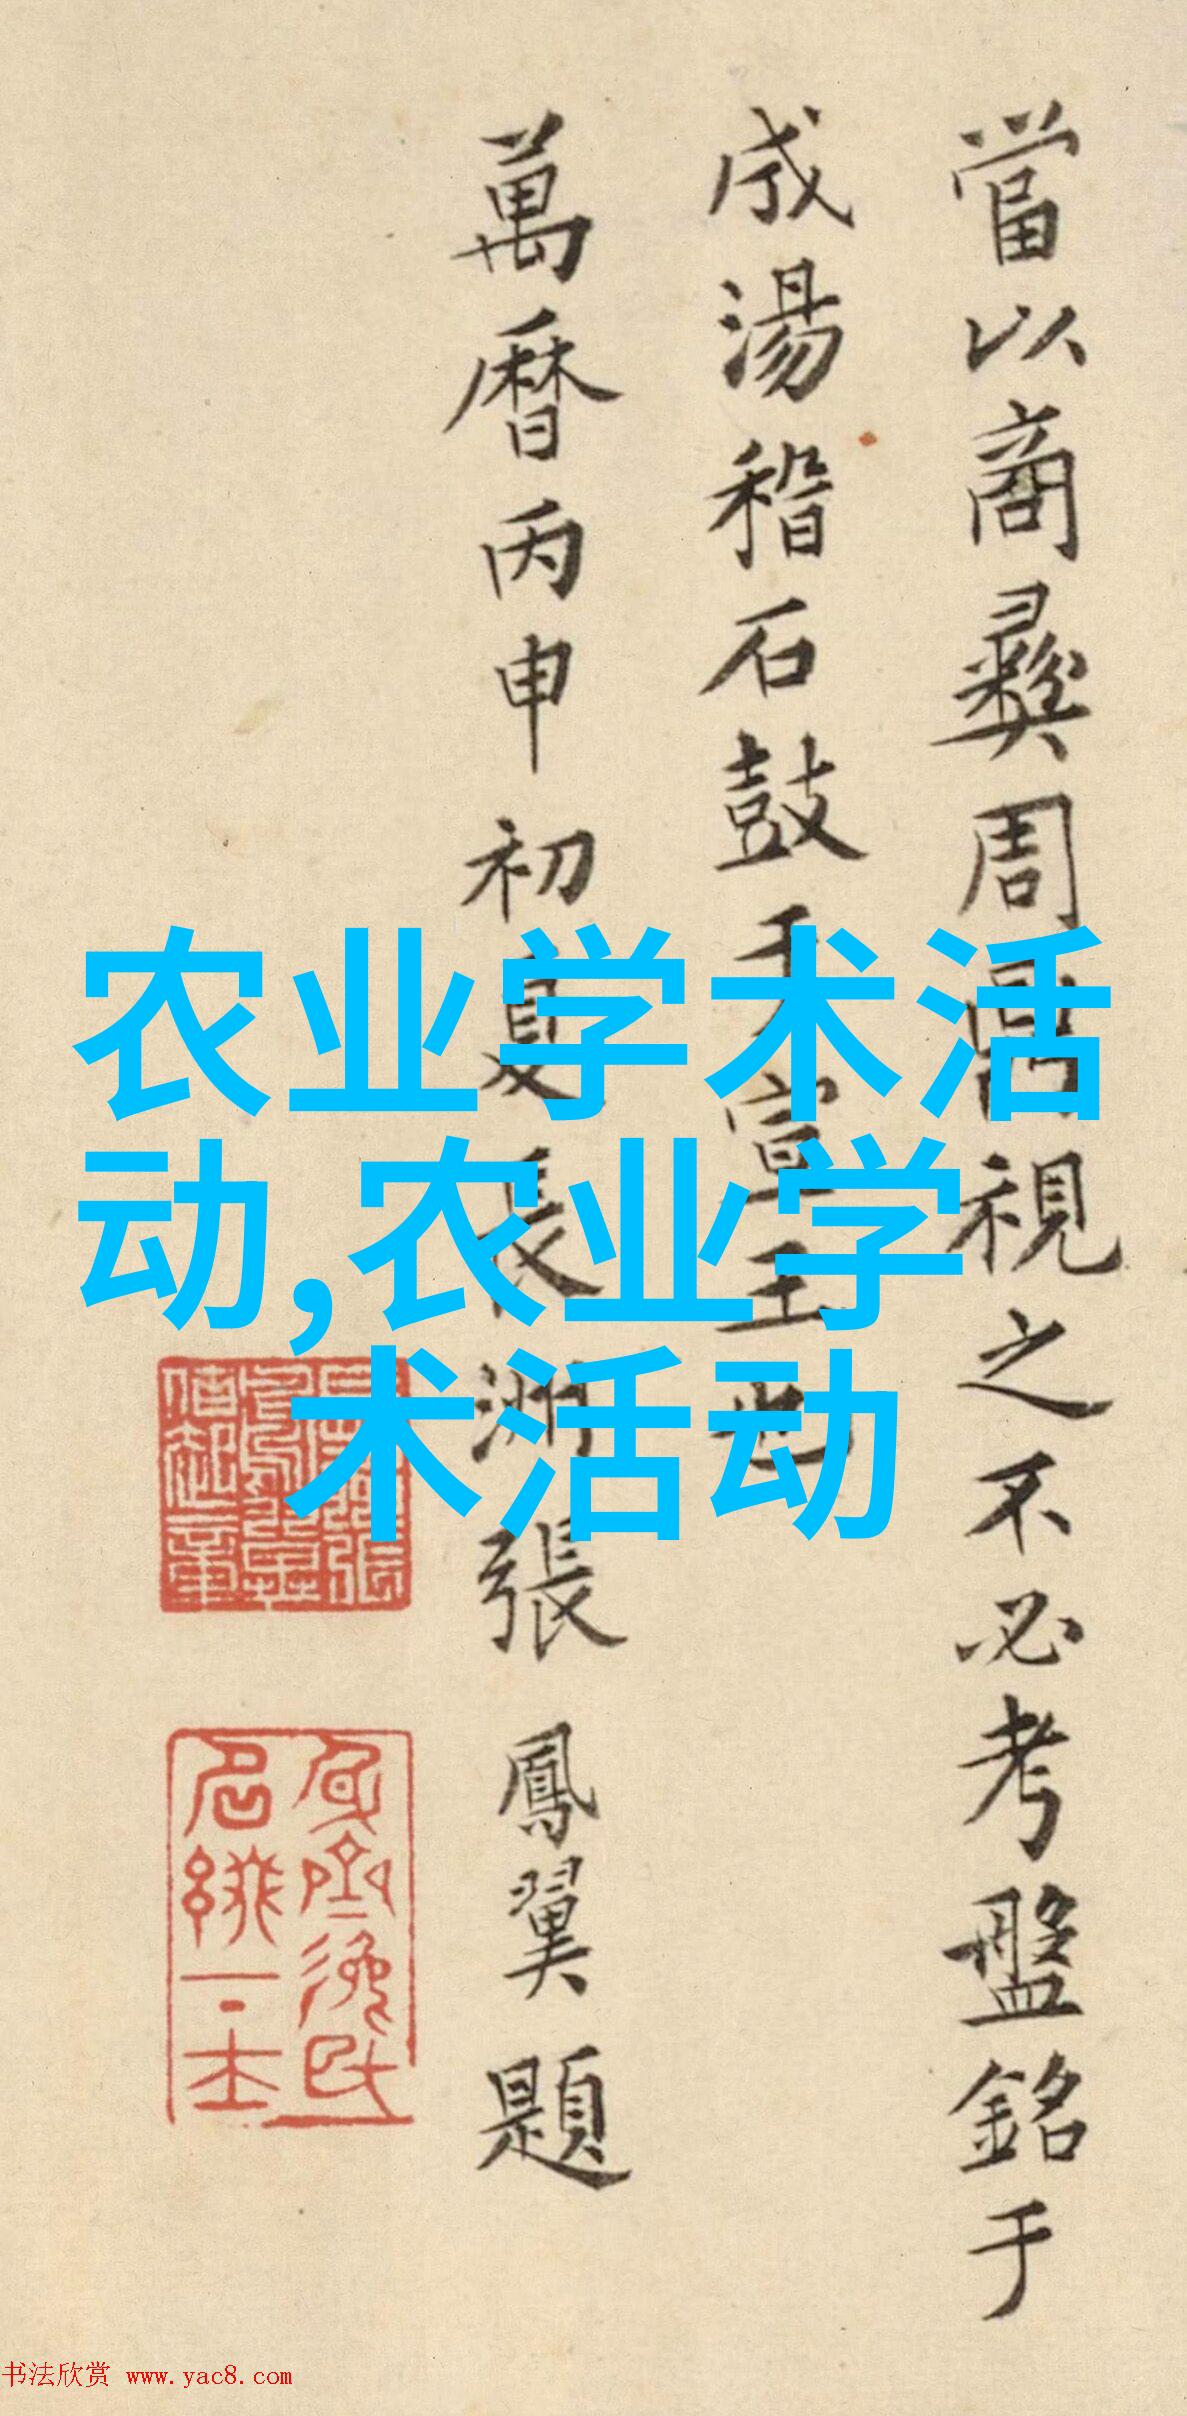 當以商彝周鼎視之不必考盤銘于
成湯稽石鼓于宣王也
萬曆丙申初夏長洲張鳳翼題
农业学术活
动,农业学
术活动
书法欣赏 www.yac8.com